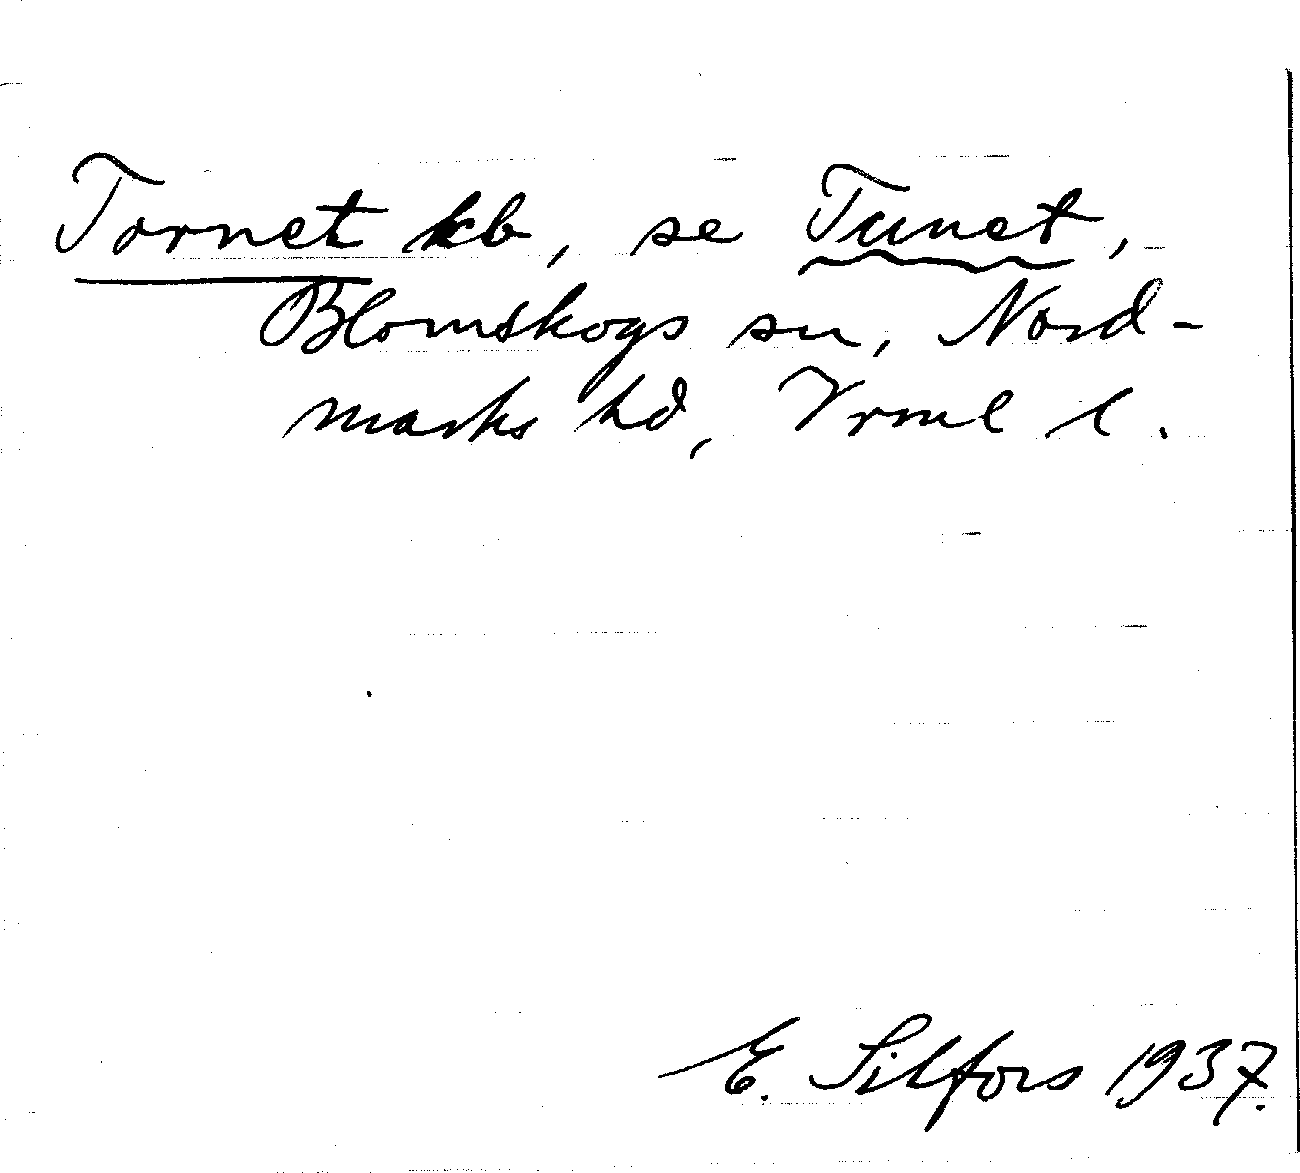 Tornet kb, se Tunet,
Blomskogs sn, Nord-
marks hd, Vrml l.
E. Silfors 1937.